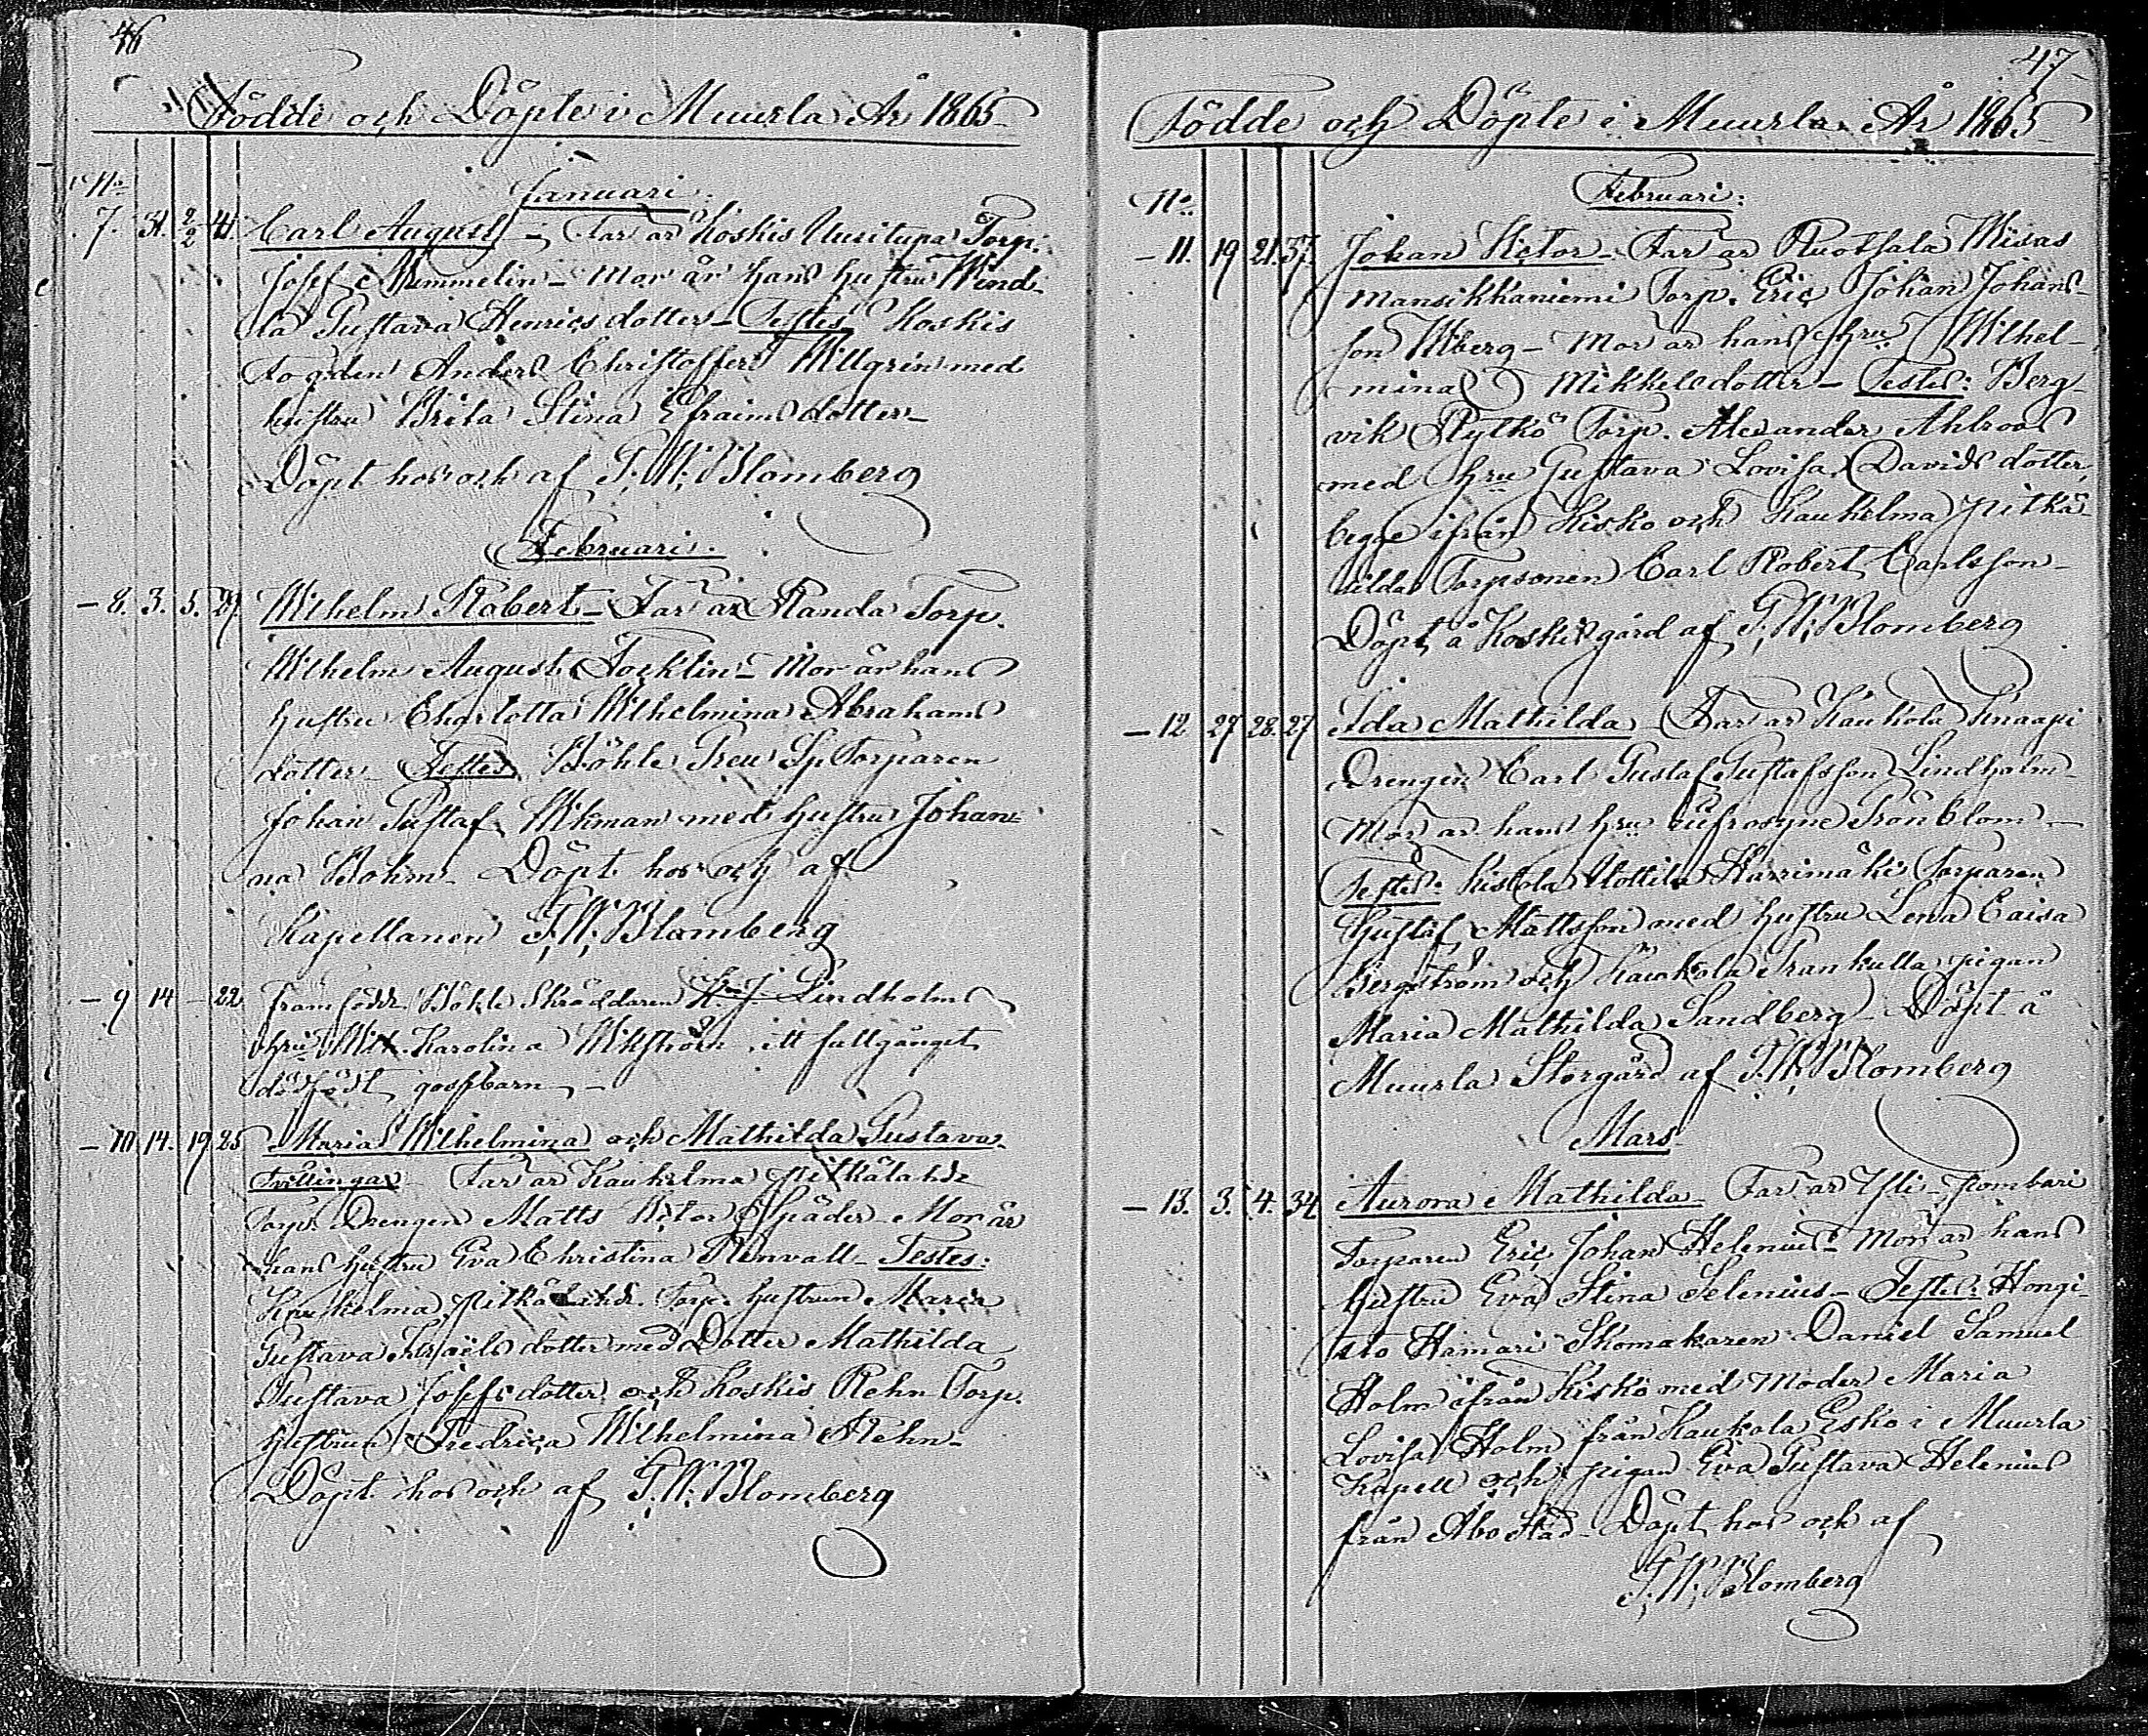 46
Födde och Döpte i Muurla År 1865
No
Januari:
7. 31. 2/2 41. Carl August – Far är Koskis Uusitupa Torp.
Josef Himmelin – Mor är hans hustru Wend-
la Gustava Henricsdotter – Testes Koskis
Anders Christoffers Willgrén med
hustru Brita Stina Efraimsdotter –
Döpt hos och af F. W. Blomberg
Februari.
– 8. 3. 5. 27 Wilhelm Robert – Far är Randa Torp.
Wilhelm August Focklin – Mor är hans
hustru Charlotta Wilhelmina Abrahams
dotter – Testes Böhle Sp. Torparen
Johan Gustaf Wikman med hustru Johan-
na Böhm – Döpt hos och af
Kapellanen F. W. Blomberg
– 9 14 – 22 Framfödde Böhle Skräddaren Lindholms
hru Karolina Wikström, ett fullgånget
dödfödt gossbarn –
– 10 14. 19 25 Maria Wilhelmina och Mathilda Gustava
Tvillingar – Far är Kaukelma Pitkälahde
Torp. Drengen Matts Victor Späder – Mor är
hans hustru Eva Christina Renvall – Testes:
Kaukelma Pitkälahde Torp. hustrun Maria
Gustava Israëlsdotter med Dotter Mathilda
Gustava Josefsdotter och Koskis Rehn Torp.
hustrun Fredrica Wilhelmina Rehn –
Döpt hos och af F. W. Blomberg
47
Födde och Döpte i Muurla År 1865
No
Februari:
– 11. 19 21. 37. Johan Victor – Far är Ruotsala Wisas
Mansikkaniemi Torp. Eric Johan Johans-
son Wiberg – Mor är hans hru Wilhel-
mina Mikkelsdotter – Testes: Berg-
vik Rytkö Torp. Alexander Ahlroos
med hru Gustava Lovisa Davidsdotter,
begge ifrån Kisko och Kaukelma Pitkä-
Torpsonen Carl Robert Carlsson –
Döpt å Koskis gård af F. W. Blomberg
– 12 27 28. 27 Ida Mathilda – Far är Kaukola Knaapi
Drengen Carl Gustaf Gustafsson Lindholm –
Mor är hans hru Eufrosyne Grönblom –
Testes: Kistola Uottila Harrimäki Torparen
Gustaf Mattsson med hustru Lena Caisa
Bergström och Kaukola Trankulla pigan
Maria Mathilda Sandberg – Döpt å
Muurla Storgård af F. W. Blomberg
Mars
– 13. 3. 4. 34 Aurora Mathilda – Far är Yli-Pombari
Torparen Eric Johan Helenius – Mor är hans
hustru Eva Stina Selenius – Testes: Hongi-
sto Hamari Skomakaren Daniel Samuel
Holm ifrån Kisko med Moder Maria
Lovisa Holm från Kaukola Esko i Muurla
Kapell och pigan Eva Gustava Helenius
från Åbo Stad – Döpt hos och af
F. W. Blomberg